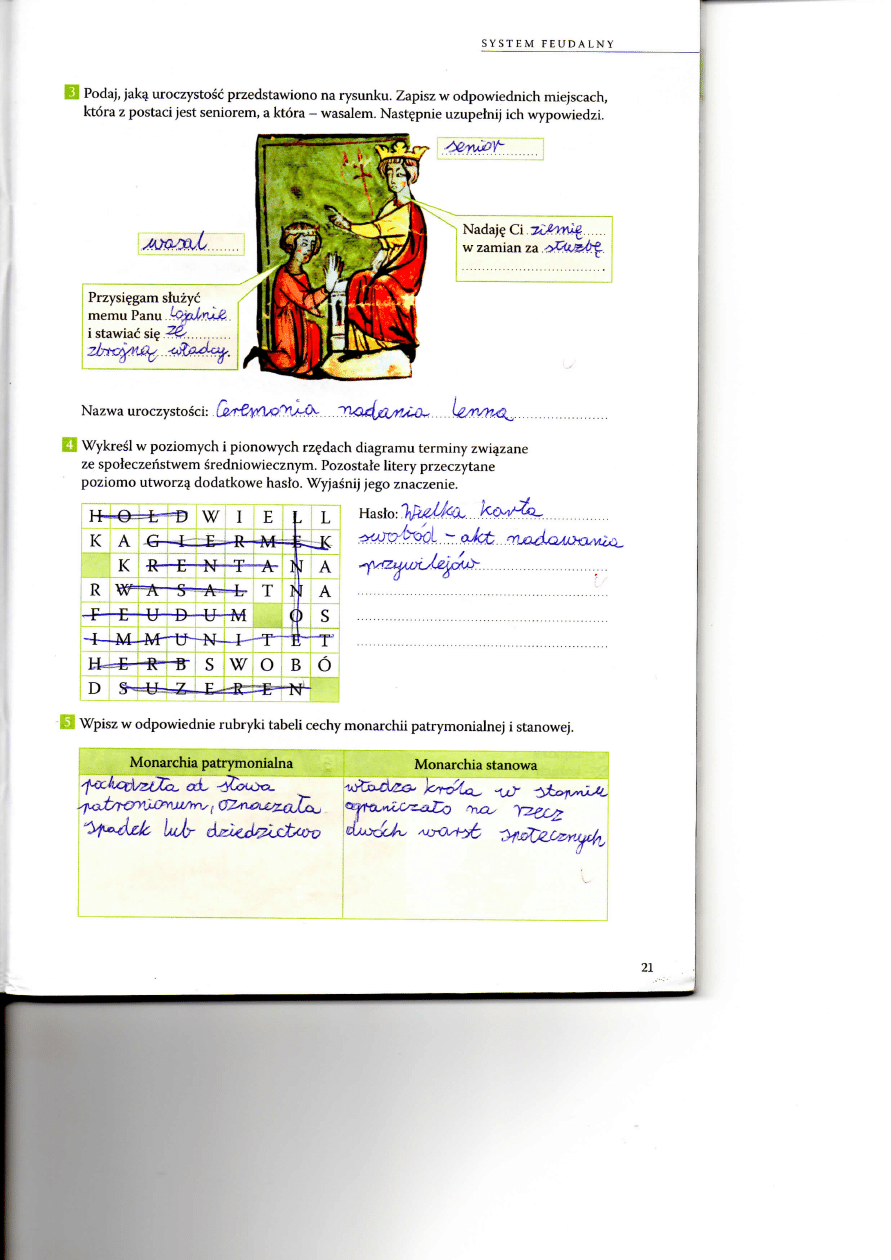 SYSTEM FEUDALNY
3 Podaj, jaką uroczystość przedstawiono na rysunku. Zapisz w odpowiednich miejscach,
która z postaci jest seniorem, a która – wasalem. Następnie uzupełnij ich wypowiedzi.
senior
Nadaję Ci ziemię
w zamian za służbę.
wasal
Przysięgam służyć
memu Panu Lojalnie
i stawiać się ze
zbrojną władcy.
Nazwa uroczystości: Ceremonia nadania lenna
4 Wykreśl w poziomych i pionowych rzędach diagramu terminy związane
ze społeczeństwem średniowiecznym. Pozostałe litery przeczytane
poziomo utworzą dodatkowe hasło. Wyjaśnij jego znaczenie.
H O Ł D W I E L L
K A G I E R M E K
K R E N T A N A
R W A S A L T N A
F E U D U M O S
I M M U N I T E T
H E R B S W O B Ó
D S U Z E R E N
Hasło: Wielka karta
swobód - akt nadawania
przywilejów
5 Wpisz w odpowiednie rubryki tabeli cechy monarchii patrymonialnej i stanowej.
Monarchia patrymonialna Monarchia stanowa
pochodziła od słowa
patronionum, oznaczała
spadek lub dziedzictwo
władza króla w stopniu
ograniczało na rzecz
dwóch warst społecznych
21